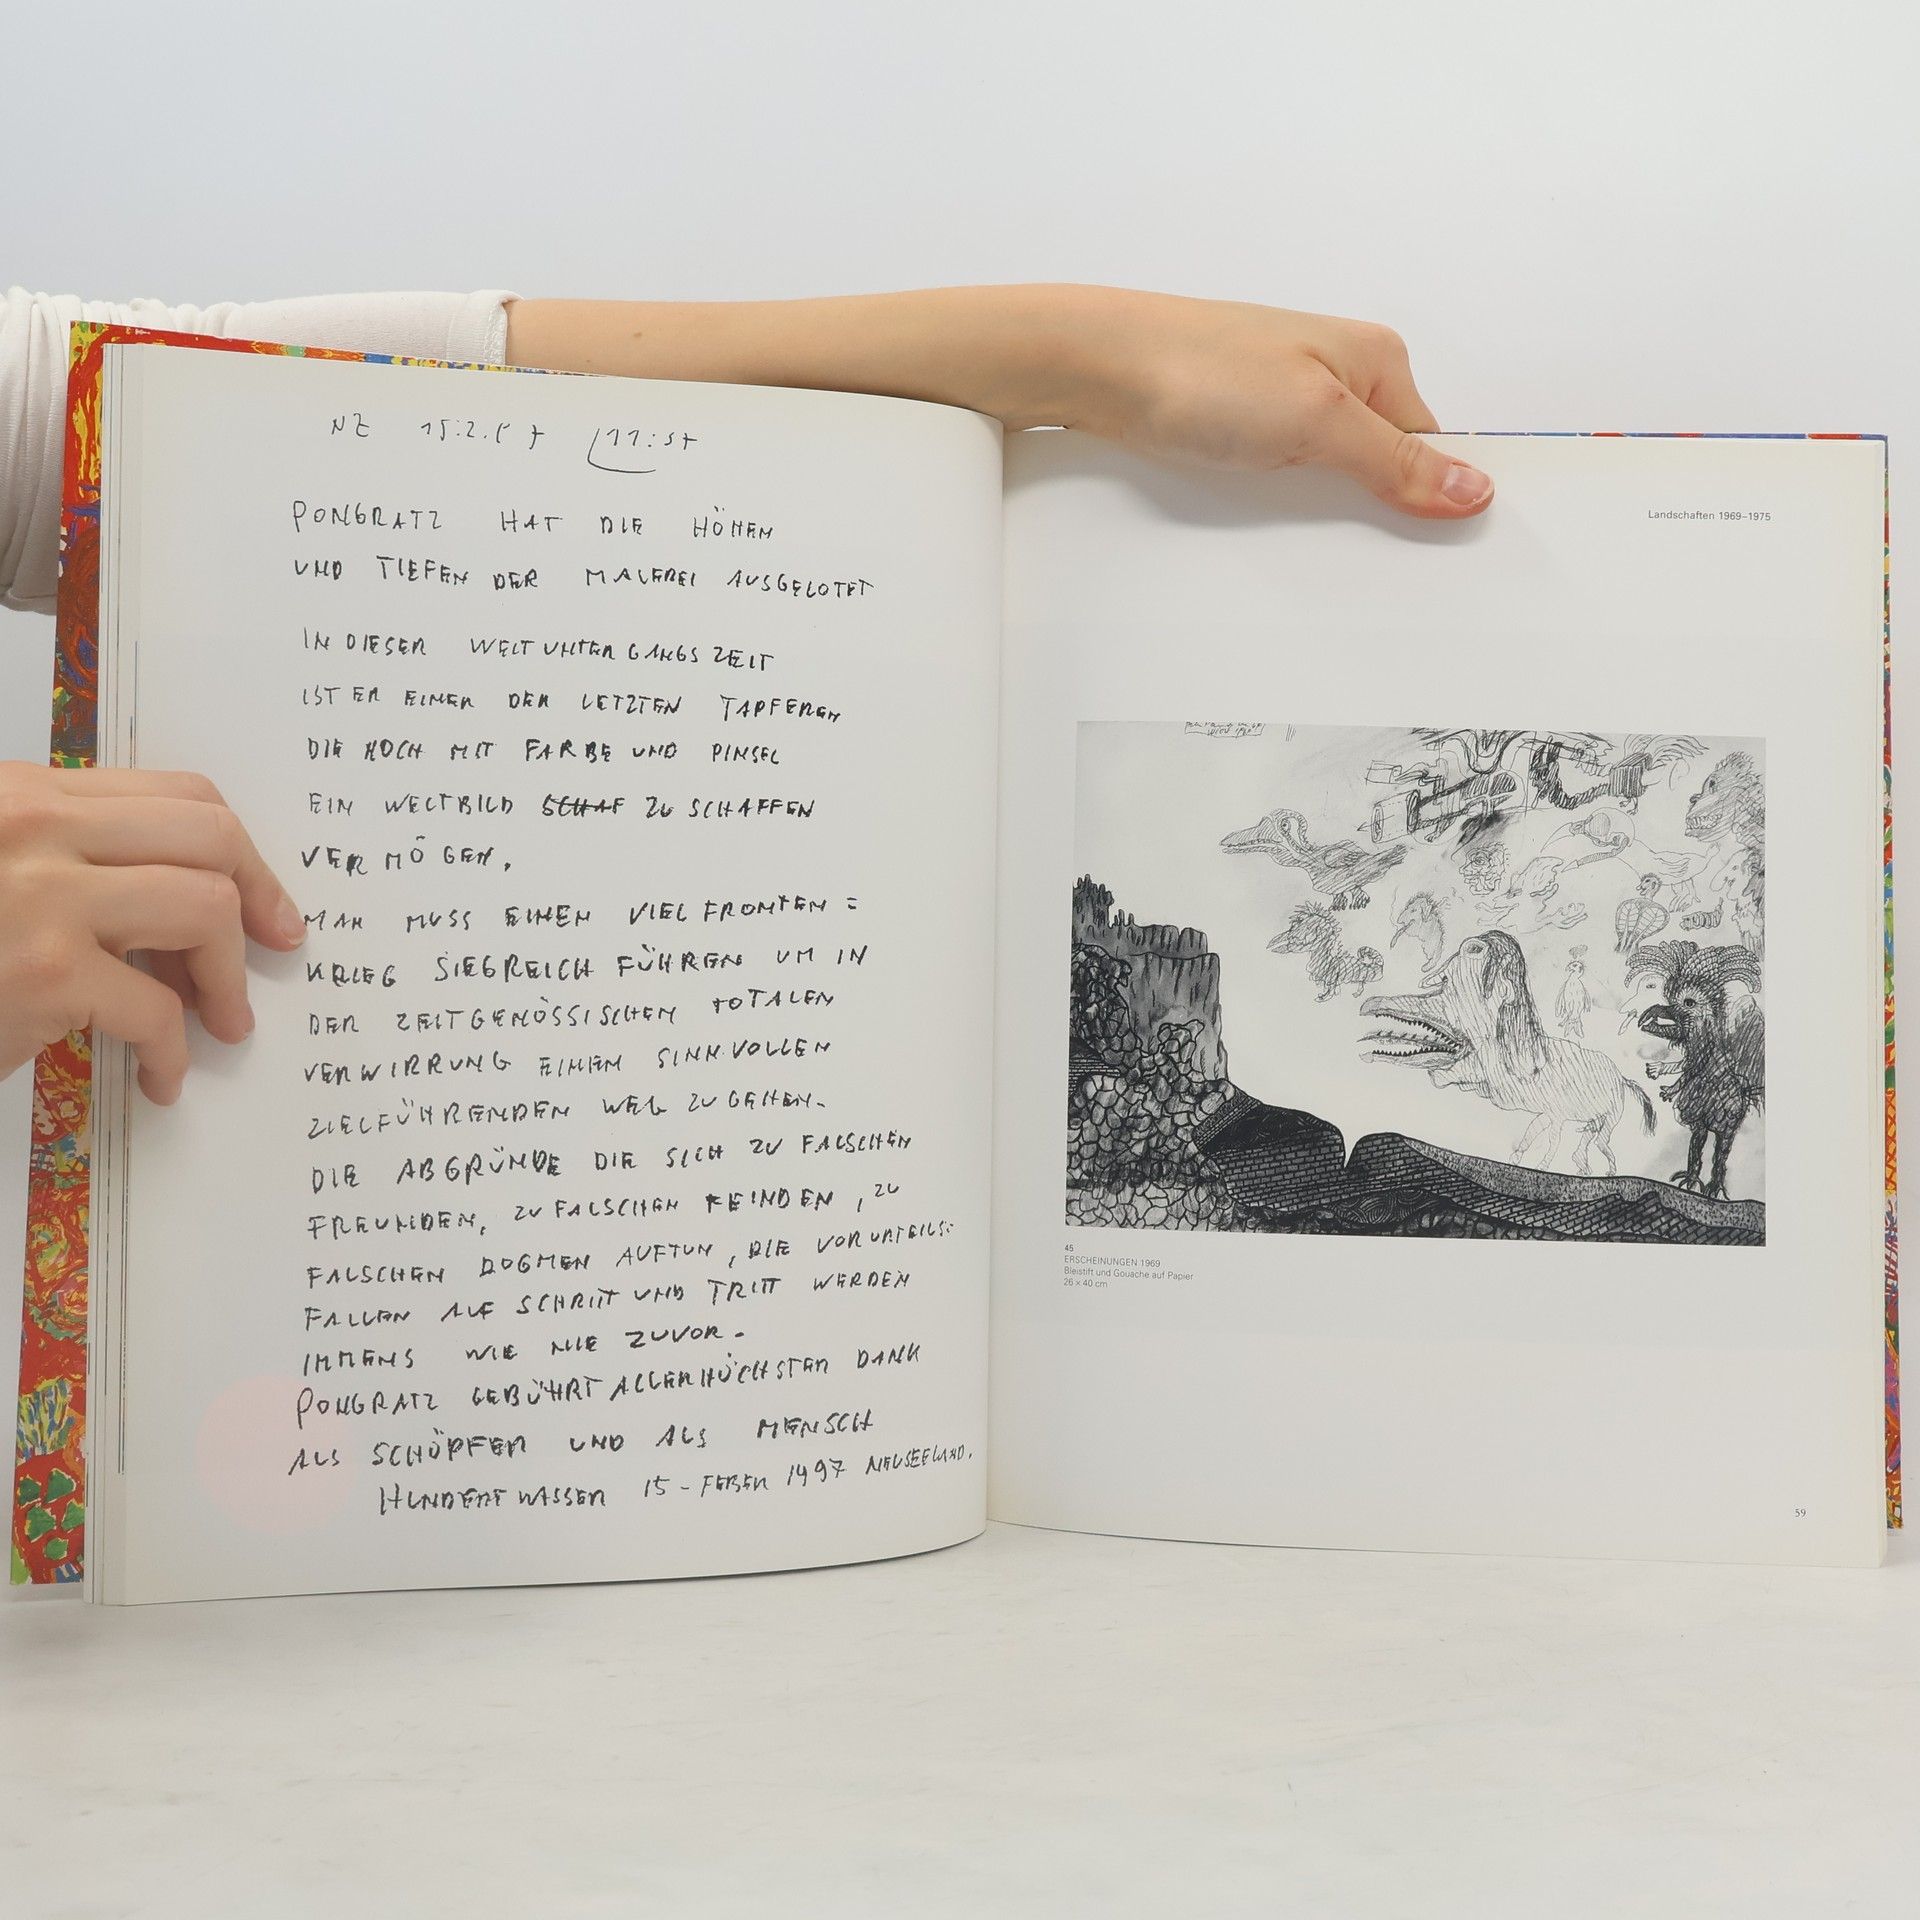 NZ 15.2.97 11:57
PONGRATZ HAT DIE HÖHEN
UND TIEFEN DER MALEREI AUSGELOTET
IN DIESER WELTUNTERGANGSZEIT
IST ER EINER DER LETZTEN TAPFEREN
DIE NOCH MIT FARBE UND PINSEL
EIN WELTBILD SCHAF ZU SCHAFFEN
VERMÖGEN.
MAN MUSS EINEN VIELFRONTEN=
KRIEG SIEGREICH FÜHREN UM IN
DER ZEITGENÖSSISCHEN TOTALEN
VERWIRRUNG EINEN SINNVOLLEN
ZIELFÜHRENDEN WEG ZU GEHEN.
DIE ABGRÜNDE DIE SICH ZU FALSCHEN
FREUNDEN, ZU FALSCHEN FEINDEN, ZU
FALSCHEN DOGMEN AUFTUN, DIE VORURTEILS=
FALLEN AUF SCHRITT UND TRITT WERDEN
IMMENS WIE NIE ZUVOR.
PONGRATZ GEBÜHRT ALLERHÖCHSTER DANK
ALS SCHÖPFER UND ALS MENSCH
HUNDERTWASSER 15-FEBER 1997 NEUSEELAND.
Landschaften 1969–1975
45
ERSCHEINUNGEN 1969
Bleistift und Gouache auf Papier
26 × 40 cm
59